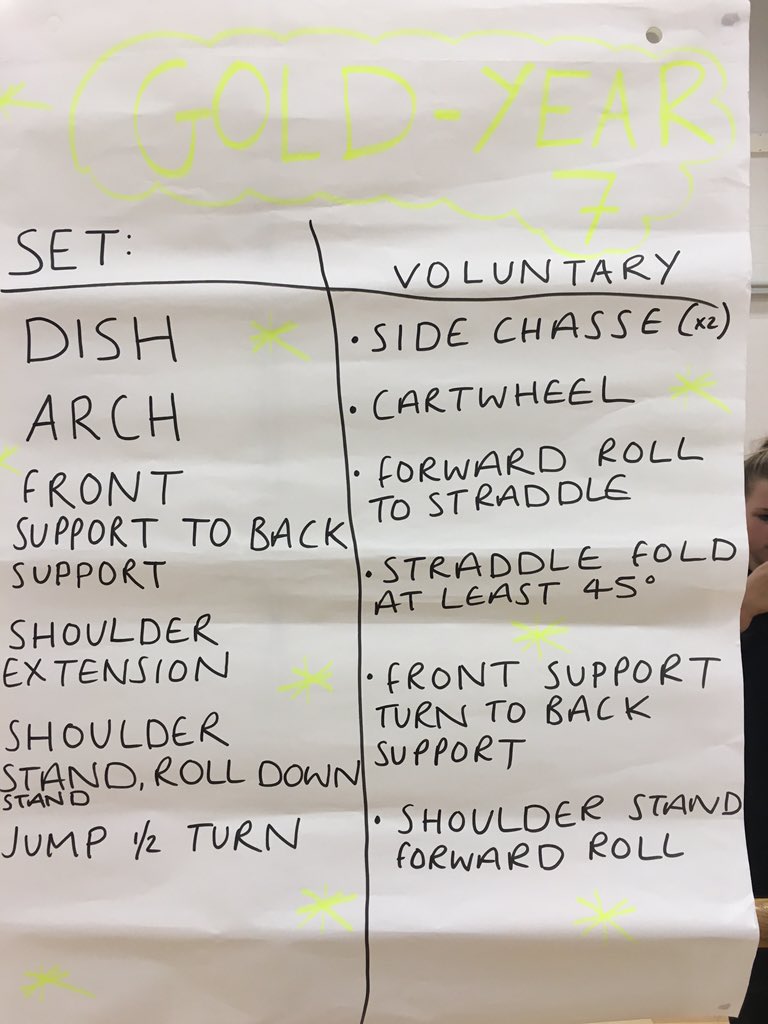 GOLD-YEAR
7
SET:
DISH
ARCH
FRONT
SUPPORT TO BACK
SUPPORT
SHOULDER
EXTENSION
SHOULDER
STAND, ROLL DOWN
STAND
JUMP 1/2 TURN
VOLUNTARY
• SIDE CHASSE (x2)
• CARTWHEEL
• FORWARD ROLL
TO STRADDLE
• STRADDLE FOLD
AT LEAST 45°
• FRONT SUPPORT
TURN TO BACK
SUPPORT
• SHOULDER STAND
FORWARD ROLL